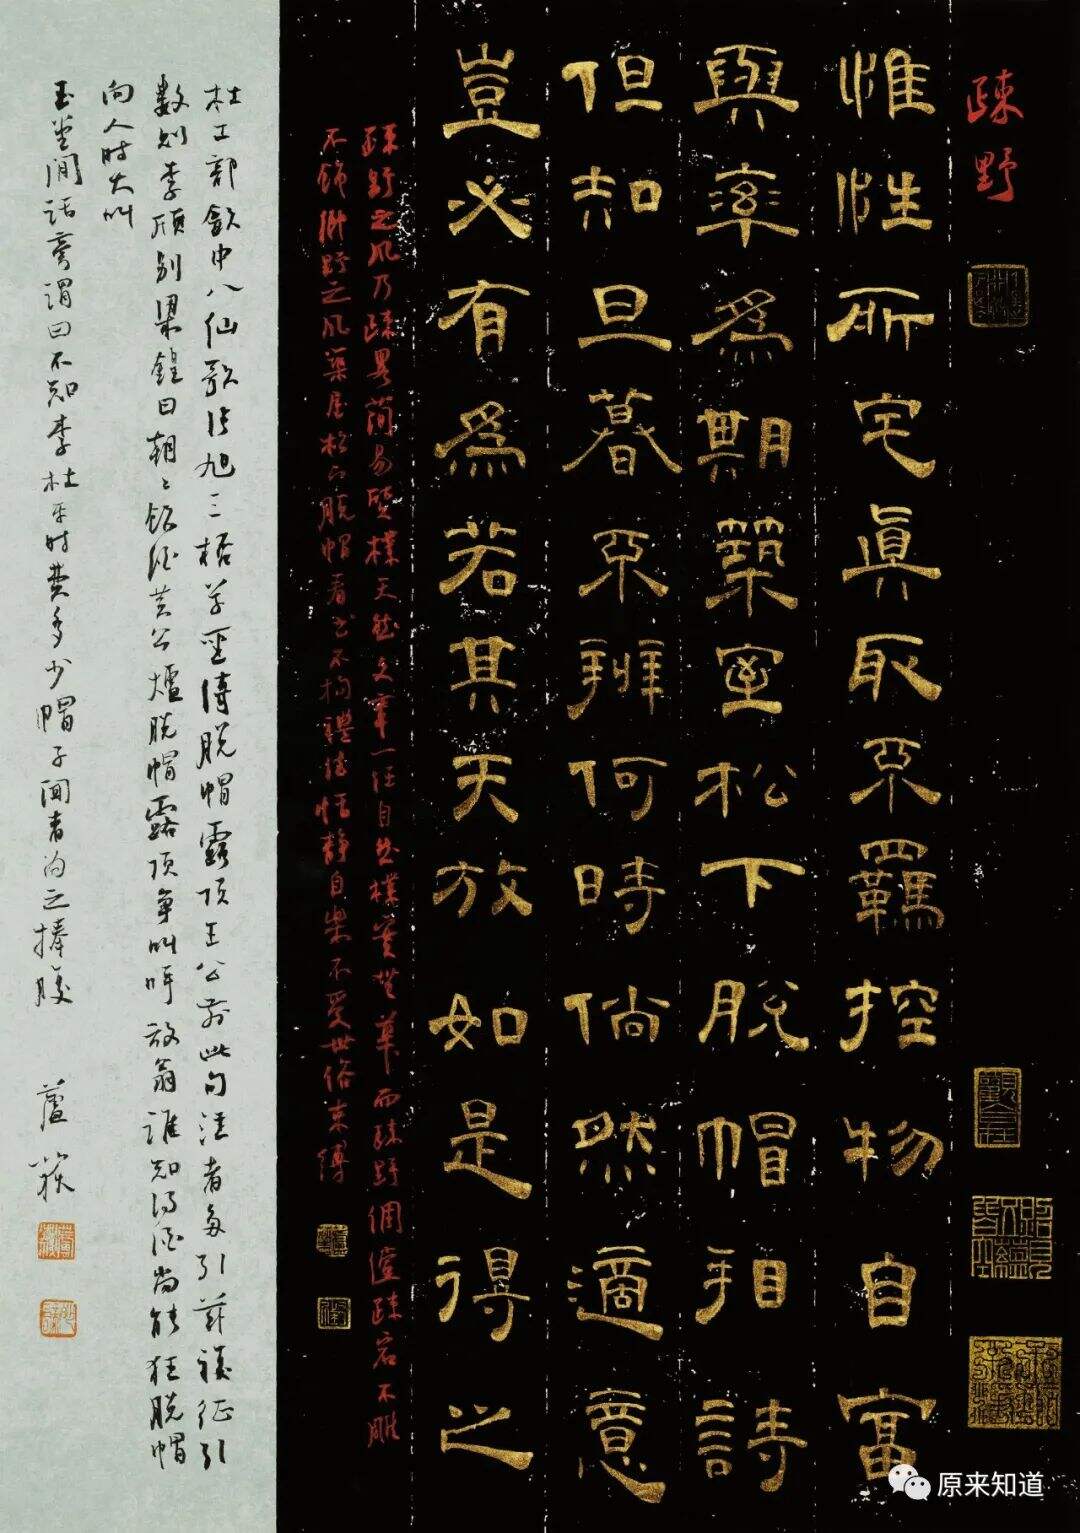 疎野
惟性所宅眞取不羈控物自富
與率為期築室松下脫帽看詩
但知旦暮不辨何時倘然適意
豈必有為若其天放如是得之
疎野之风乃疎畧簡易質樸天然文筆一任自然樸實無華而疎野倜儻疎宕不雕
不飾疎野之风築屋松下脫帽看書不拘禮法恬静自樂不受世俗束縛
杜工部飲中八仙歌張旭三杯草聖傳脫帽露頂王公前此句注者多引征引
數則李頎別梁鍠曰朝〻飲酒黃公壚脫帽露頂爭叫呼放翁誰知得酒尚能狂脫帽
向人时大叫
玉堂閒話嘗謂曰不知李杜平时費多少帽子聞者为之捧腹
蘆荻
原来知道